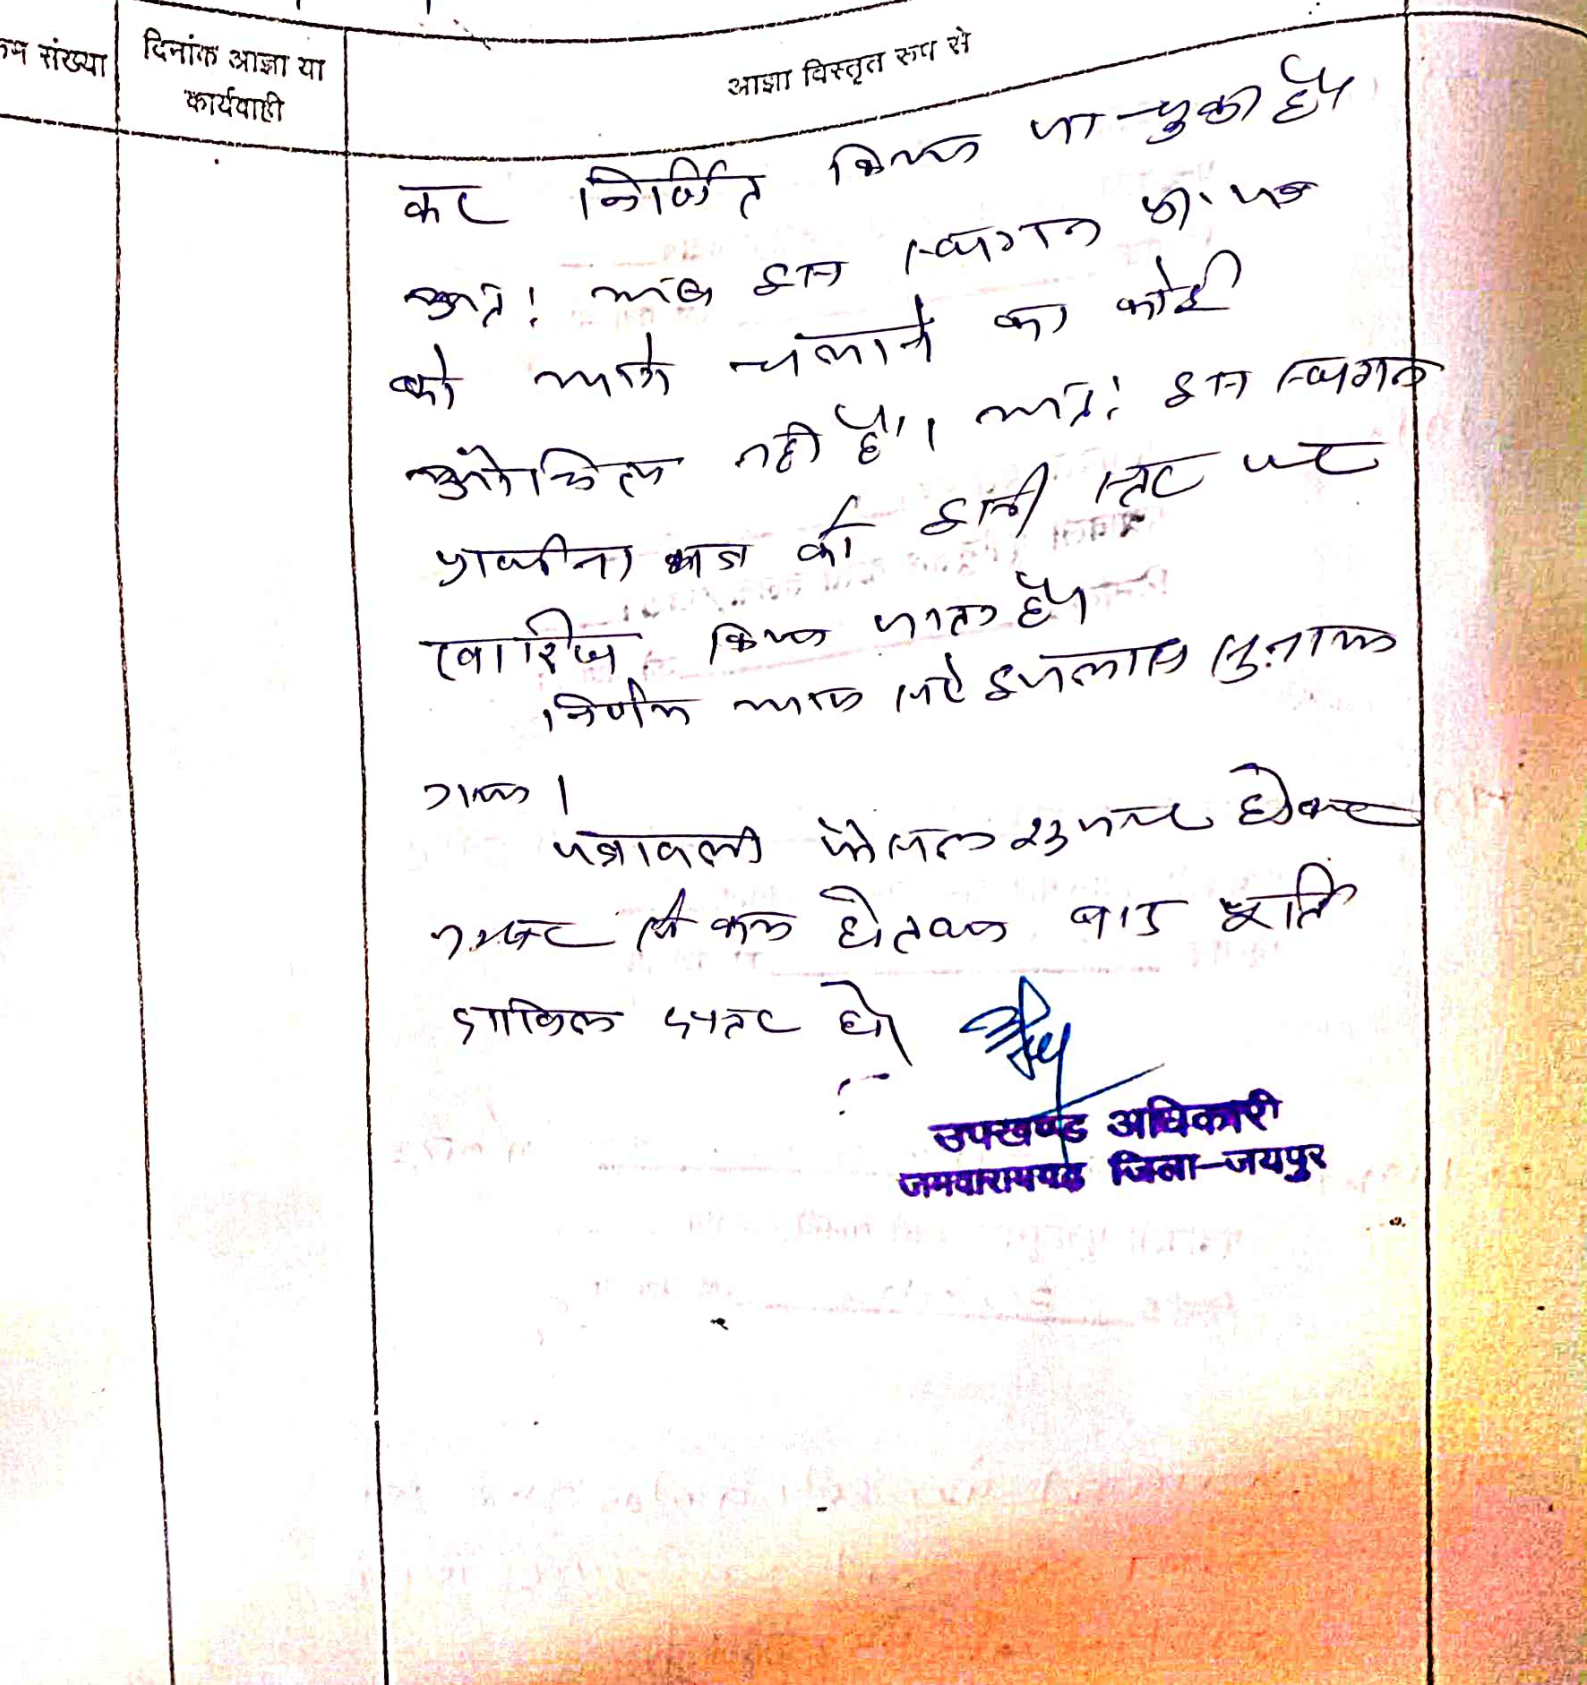 क्रम संख्या
दिनांक आज्ञा या
कार्यवाही
आज्ञा विस्तृत रूप से
कर निर्णित किया जा चुका है।
अतः अब इस स्थगन प्रा. पत्र
को आगे चलाने का कोई
औचित्य नहीं है। अतः इस स्थगन
प्रार्थना पत्र को इसी स्तर पर
खारिज किया जाता है।
निर्णय आज सरे इजलास सुनाया
गया।
पत्रावली फैसल शुमार होकर
नम्बर से कम हो बाद पूर्ति
दाखिल दफ्तर हो।
उपखण्ड अधिकारी
जमवारामगढ़ जिला-जयपुर